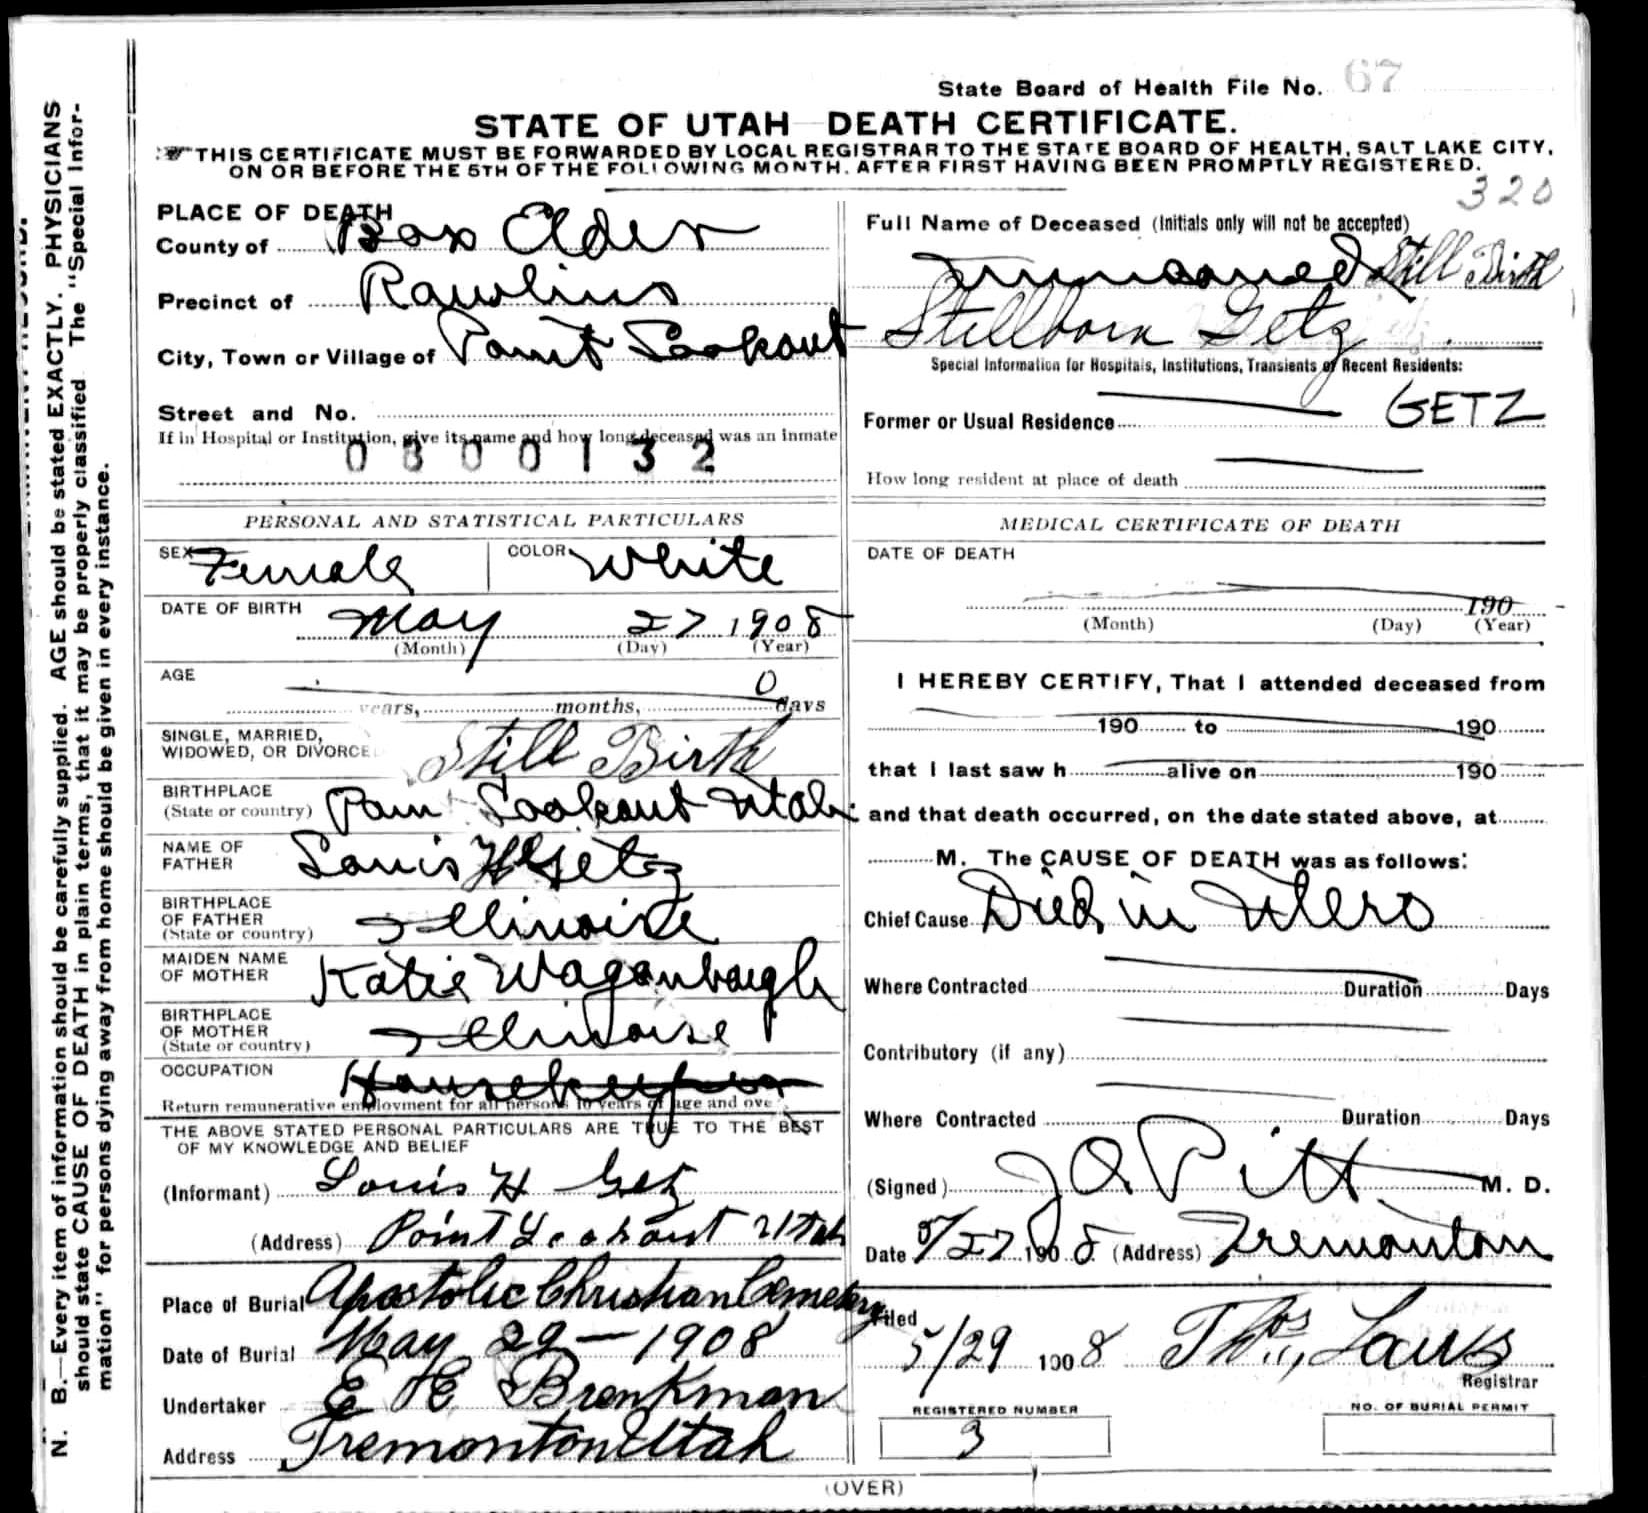 State Board of Health File No. 67
STATE OF UTAH DEATH CERTIFICATE.
THIS CERTIFICATE MUST BE FORWARDED BY LOCAL REGISTRAR TO THE STATE BOARD OF HEALTH, SALT LAKE CITY,
ON OR BEFORE THE 5TH OF THE FOLLOWING MONTH, AFTER FIRST HAVING BEEN PROMPTLY REGISTERED.
320
PLACE OF DEATH
County of Box Elder
Precinct of Rawlins
City, Town or Village of Point Lookout
Street and No.
If in Hospital or Institution, give its name and how long deceased was an inmate
0300132
PERSONAL AND STATISTICAL PARTICULARS
SEX Female COLOR White
DATE OF BIRTH May 27 1908
(Month) (Day) (Year)
AGE 0
years, months, days
SINGLE, MARRIED,
WIDOWED, OR DIVORCE Still Birth
BIRTHPLACE
(State or country) Point Lookout Utah
NAME OF
FATHER Louis H Getz
BIRTHPLACE
OF FATHER
(State or country) Illinoise
MAIDEN NAME
OF MOTHER Katie Wagonbaugh
BIRTHPLACE
OF MOTHER
(State or country) Illinoise
OCCUPATION
Return remunerative employment for all persons 10 years of age and ove
THE ABOVE STATED PERSONAL PARTICULARS ARE TRUE TO THE BEST
OF MY KNOWLEDGE AND BELIEF
(Informant) Louis H Getz
(Address) Point Lookout Utah
Place of Burial Apostolic Christian Cemetery
Date of Burial May 29 - 1908
Undertaker E H Brenkman
Address Tremonton Utah
Full Name of Deceased (Initials only will not be accepted)
Unnamed Still Birth
Stillborn Getz
Special Information for Hospitals, Institutions, Transients or Recent Residents:
Former or Usual Residence GETZ
How long resident at place of death
MEDICAL CERTIFICATE OF DEATH
DATE OF DEATH
190
(Month) (Day) (Year)
I HEREBY CERTIFY, That I attended deceased from
190 to 190
that I last saw h alive on 190
and that death occurred, on the date stated above, at
M. The CAUSE OF DEATH was as follows:
Chief Cause Died in Utero
Where Contracted Duration Days
Contributory (if any)
Where Contracted Duration Days
(Signed) J A Pitt M. D.
Date 5/27 1908 (Address) Tremonton
Filed
5/29 1908 Thos.
Registrar
REGISTERED NUMBER
3
NO. OF BURIAL PERMIT
(OVER)
N. B.—Every item of information should be carefully supplied. AGE should be stated EXACTLY. PHYSICIANS
should state CAUSE OF DEATH in plain terms, that it may be properly classified The "Special Infor-
mation" for persons dying away from home should be given in every instance.